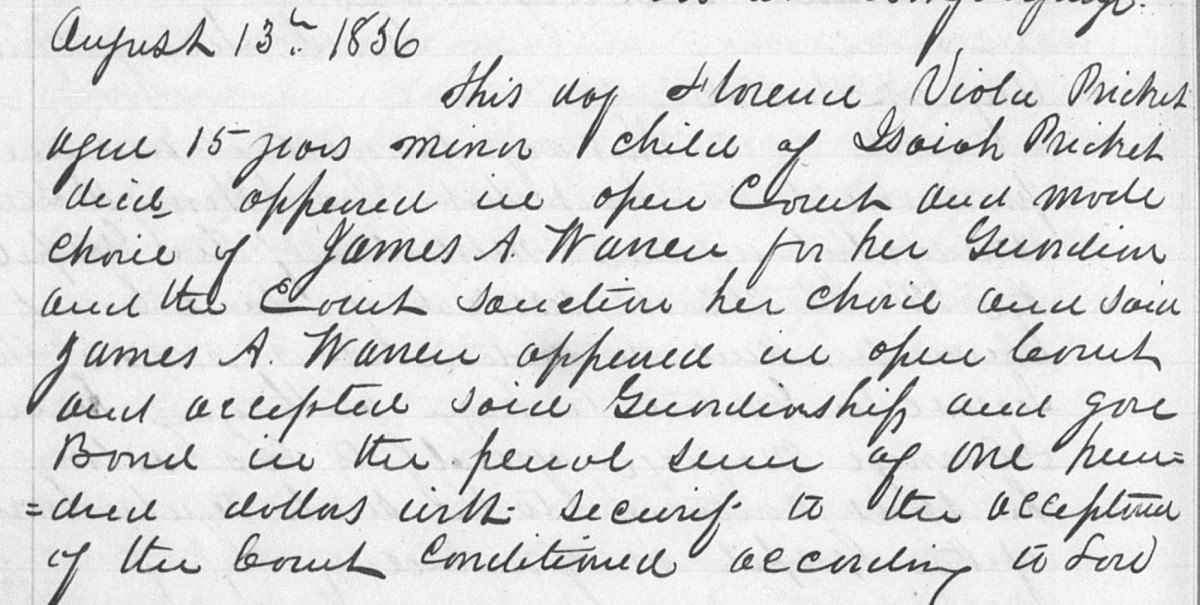 August 13th 1836
This day Florence Viola Pricket
aged 15 years minor child of Isaiah Pricket
decd appered in open Court and made
choice of James A. Warren for her Guardian
and the Court sanction her choice and said
James A. Warren appered in open Court
and accepted said Guardianship and gave
Bond in the penal sum of one hun=
=dred dollars with security to the acceptance
of the Court conditioned according to Law